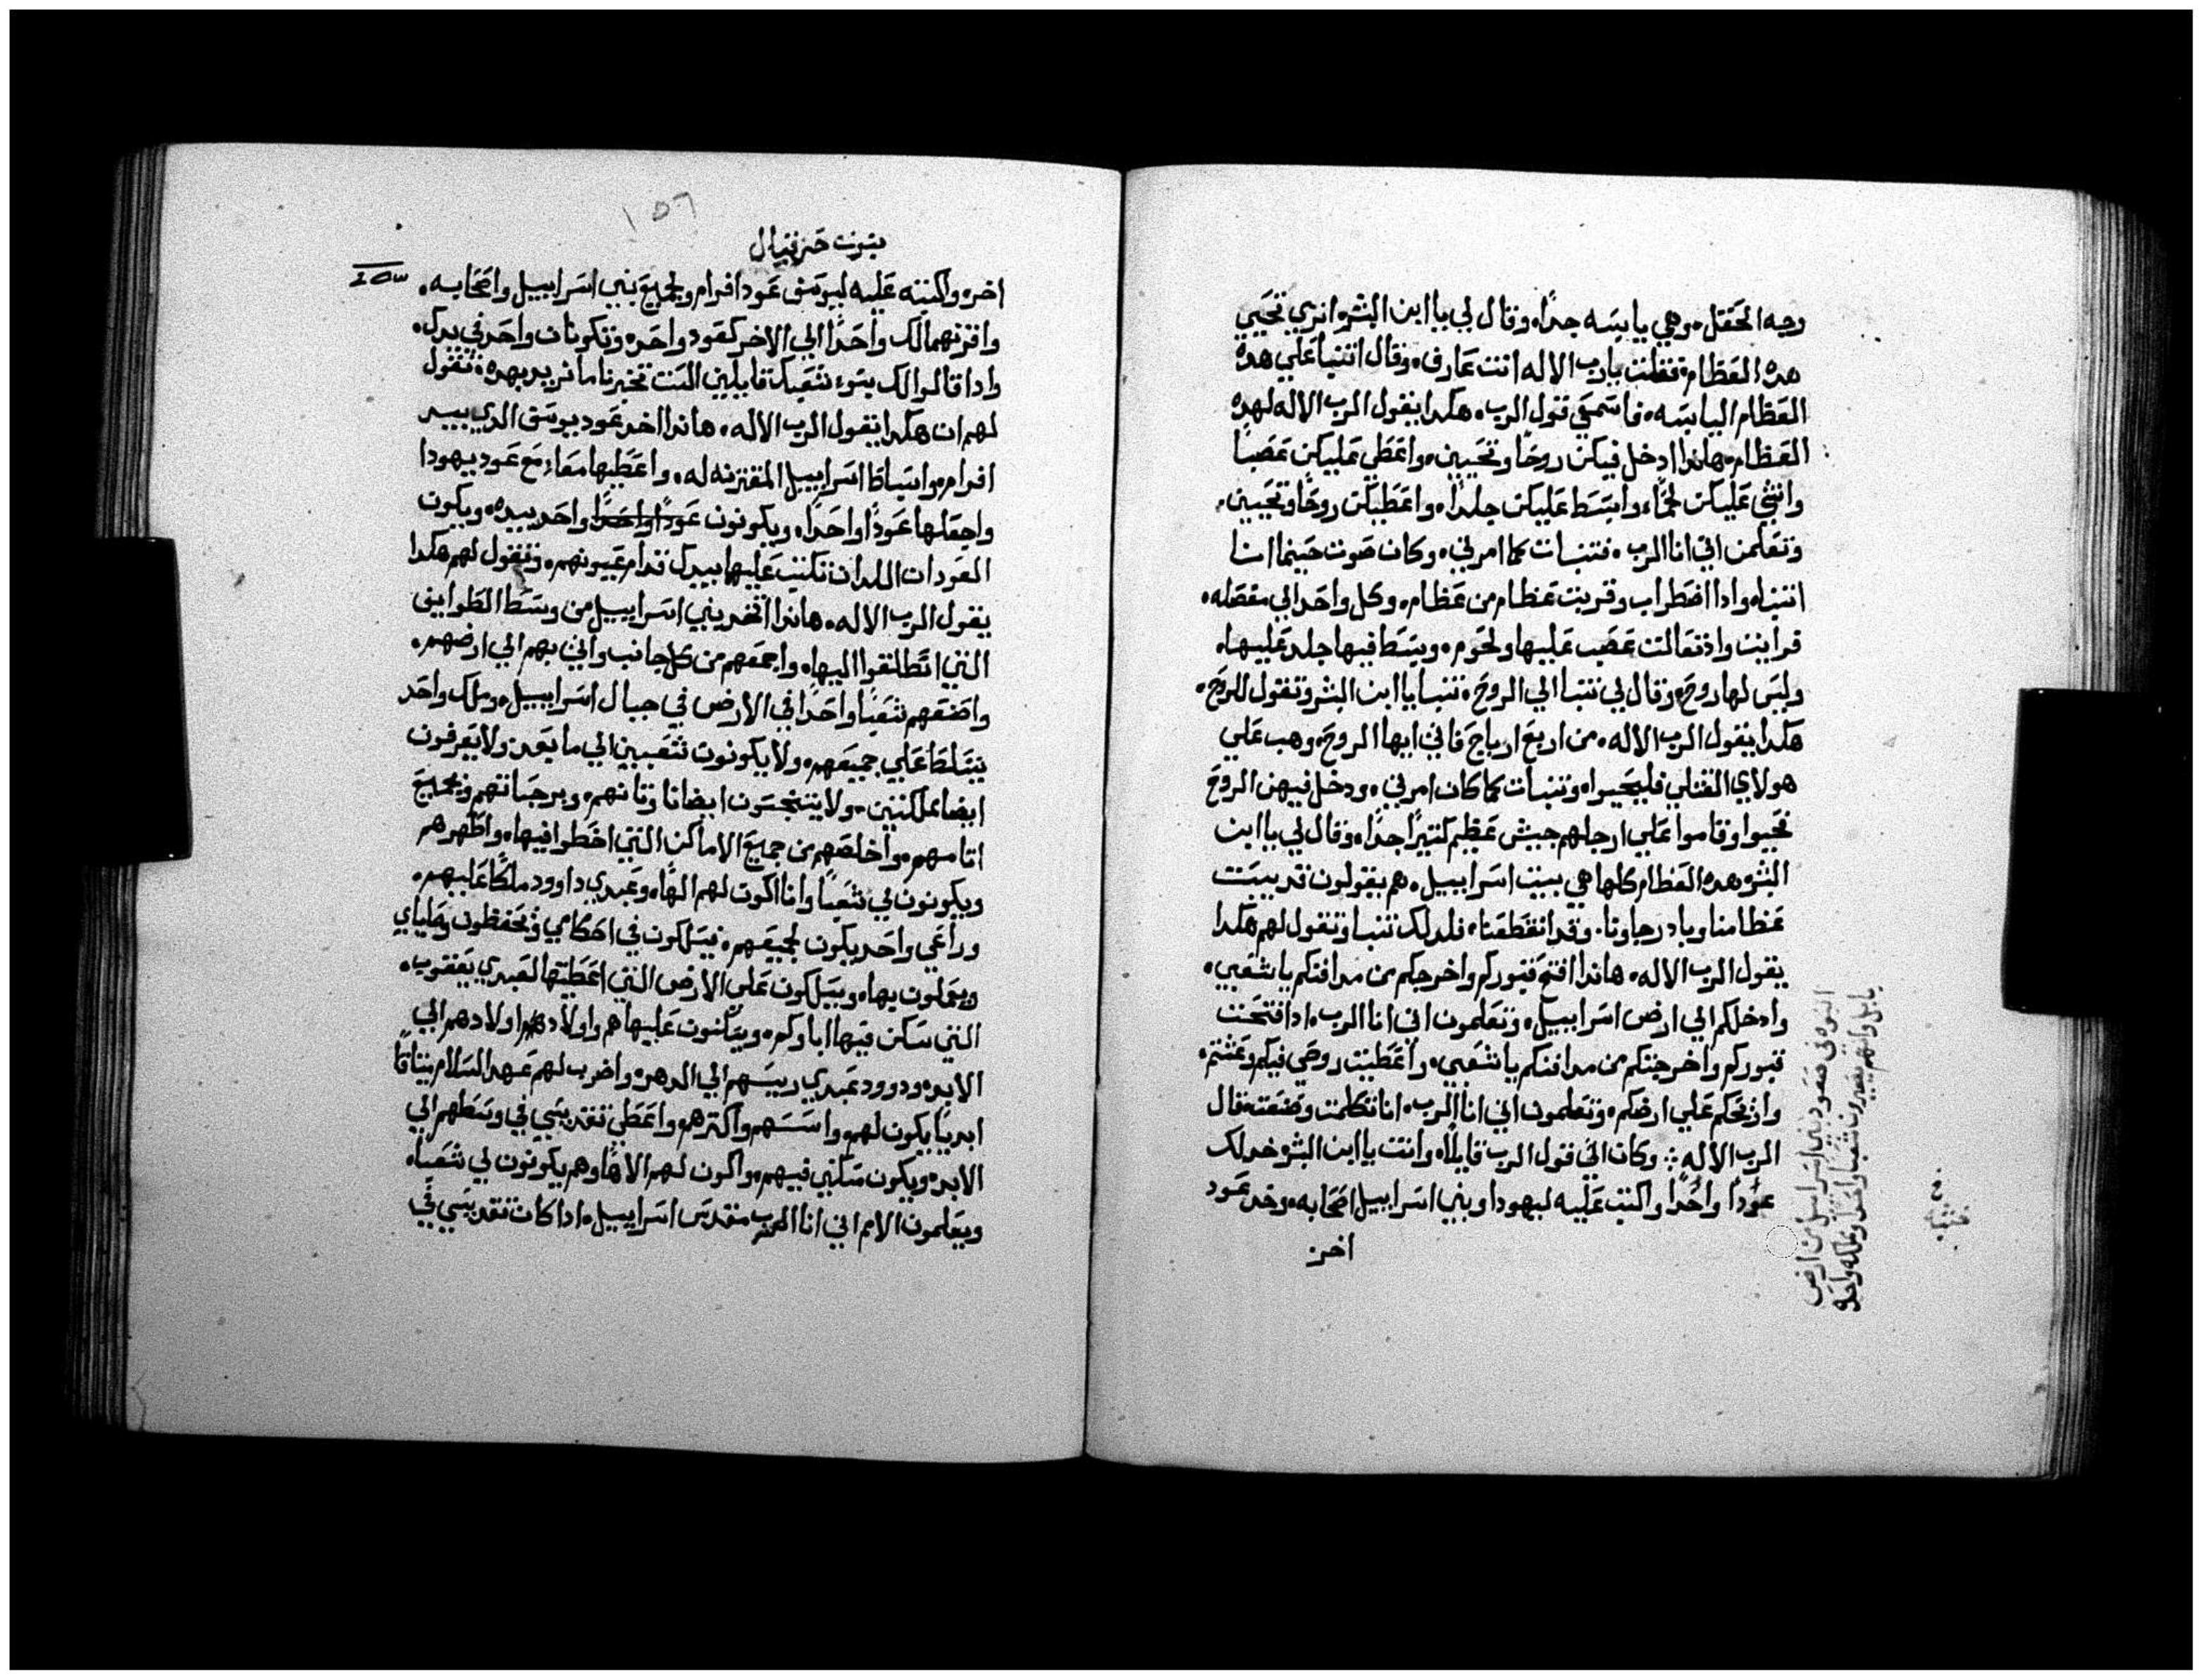 وجه الحقل. وهي يابسه جدًا. وقال لي يا ابن البشر اتري تحيي
هده العظام. فقلت يارب الاله انت عارف. وقال اتنبا علي هده
العظام اليابسه. فاسمعي قول الرب. هكدا يقول الرب الاله لهده
العظام. هاندا ادخل فيكن روحًا وتحيين. واعطي عليكن عصبًا
وانشي عليكن لحمًا. وابسط عليكن جلدًا. واعطيكن روحًا وتحيين.
وتعلمن اني انا الرب. فتنبات كما امرني. وكان صوت حينما انا
اتنبا. وادا اضطراب وقربت عظام من عظام. وكل واحد الي مفصله.
فرايت وادتعالت عصب عليها ولحوم. وبسط فيها جلد عليها.
وليس لها روح. وقال لي تنبا الي الروح. تنبا يا ابن البشر وتقول للروح.
هكدا يقول الرب الاله. من اربع ارياح فاتي ايها الروح. وهب علي
هولاي القتلي فليحيوا. وتنبات كما كان امرني. ودخل فيهن الروح
فحيوا وقاموا علي ارجلهم جيش عظيم كتيرًا جدًا. وقال لي يا ابن
البشر هده العظام كلها هي بيت اسراييل. هم يقولون قد يبست
عظامنا وباد رجاونا. وقد انقطعنا. فلدلك تنبا وتقول لهم هكدا
يقول الرب الاله. هاندا افتح قبوركم واخرجكم من مدافنكم يا شعبي.
وادخلكم الي ارض اسراييل. وتعلمون اني انا الرب. ادا فتحت
قبوركم واخرجتكم من مدافنكم يا شعبي. واعطيت روحي فيكم وعشتم.
واريحكم علي ارضكم. وتعلمون اني انا الرب. انا تكلمت وصنعت. قال
الرب الاله ⁘ وكان الي قول الرب قايلًا. وانت يا ابن البشر خد لك
عودًا واحدًا واكتب عليه ليهودا وبني اسراييل اصحابه. وخد عود
اخر
النبوه في صعود بني اسراييل من ارض
بابل وانهم يصيرون شعبًا واحدًا ومملكه واحده
نبوت حزقيال
١٥٦
اخر. واكتبه عليه ليوسف عود افرام ولجميع بني اسراييل واصحابه.
واقرنهما لك واحدًا الي الاخر كعود واحد. وتكونان واحد في يدك.
وادا قالوا لك بنو شعبك قايلين الست تخبرنا ما تريد بهده. فتقول
لهم ان هكدا يقول الرب الاله. هاندا اخد عود يوسف الدي بيد
افرام. واسباط اسراييل المقترنه له. واعطيها معاء مع عود يهودا
واجعلها عودًا واحدًا. ويكونون عودًا واحدًا واحد بيده. ويكون
العودان اللدان تكتب عليها بيدك قدام عيونهم. وتقول لهم هكدا
يقول الرب الاله. هاندا اتخد بني اسراييل من وسط الطوايف
التي انطلقوا اليها. واجمعهم من كل جانب واتي بهم الي ارضهم.
واصنعهم شعبًا واحدًا في الارض في جبال اسراييل. وملك واحد
يتسلط علي جميعهم. ولا يكونون شعبين الي ما بعد. ولا يعرفون
ايضا مملكتين. ولا يتنجسون ايضا باوتانهم. وبرجساتهم وبجميع
اتامهم. واخلصهم من جميع الاماكن التي اخطوا فيها. واطهرهم
ويكونون لي شعبًا وانا اكون لهم الهًا. وعبدي داوود ملكًا عليهم.
وراعي واحد يكون لجميعهم. فيسلكون في احكامي ويحفظون وصاياي
ويعملون بها. ويسلكون علي الارض التي اعطيتها لعبدي يعقوب.
التي سكن فيها اباوكم. ويسكنون عليها هم واولادهم اولادهم الي
الابد. ودوود عبدي رييسهم الي الدهر. واضرب لهم عهد السلام ميتاقًا
ابديًا يكون لهم. واسسهم واكترهم. واعطي تقديسي في وسطهم الي
الابد. ويكون مسكني فيهم. واكون لهم الاهًا وهم يكونون لي شعبًا.
ويعلمون الامم اني انا الرب مقدس اسراييل. ادا كان تقديسي في